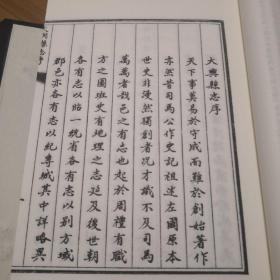 大興縣志序
天下事莫易於守成而難於創始著作
亦然昔司馬公作史記祖述左國原本
世史非然獨創者況才識不及司馬
萬萬者哉邑之有志也起於周禮有職
方之圖班史有地理之志延及後世朝
各有志以貽一統省各有志以別方域
郡邑亦各有志以紀專城其中詳略異